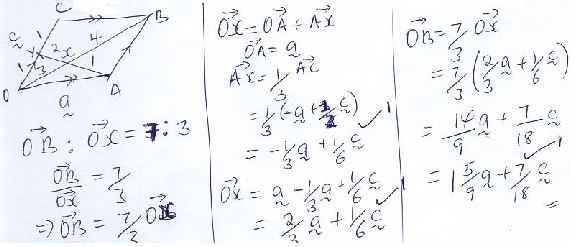 C
B
c
1
1
2
x
4
3
1
O
a
A
OB : OX = 7 : 3
OB/OX = 7/3
⇒ OB = 7/3 OX
OX = OA + AX
OA = a
AX = 1/3 AC
= 1/3 (-a + 1/2 c)
= -1/3 a + 1/6 c ✓ 1
OX = a - 1/3 a + 1/6 c
= 2/3 a + 1/6 c ✓ 1
OB = 7/3 OX
= 7/3 (2/3 a + 1/6 c)
= 14/9 a + 7/18 c
= 1 5/9 a + 7/18 c ✓ 1